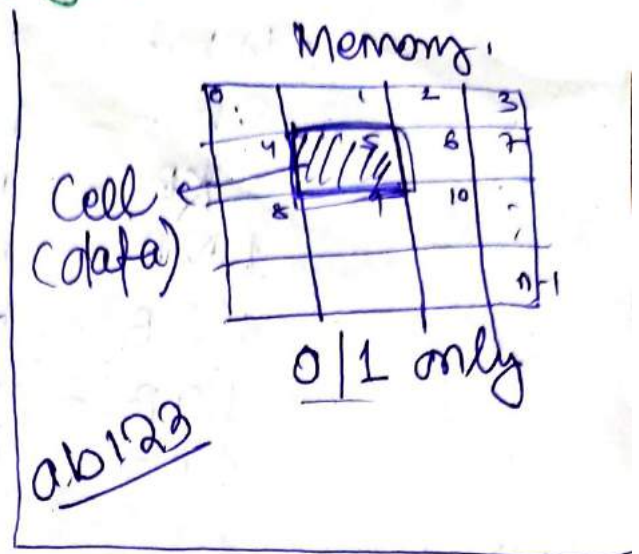 Memory.
0 1 2 3
4 5 6 7
8 9 10
n-1
Cell
(data)
0|1 only
ab123